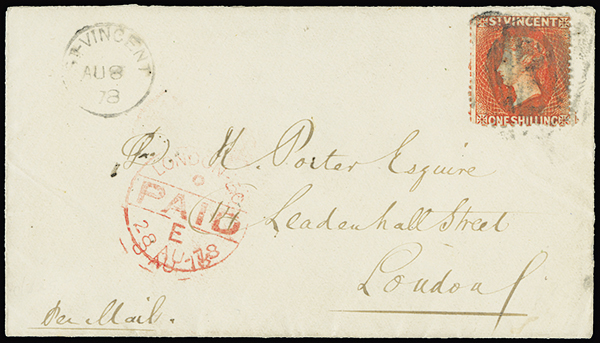 ST. VINCENT
AU 8
78
ST. VINCENT
ONE SHILLING
H. Porter Esquire
LONDON
PAID
E
28 AU 78
Leadenhall Street
London
Per Mail.